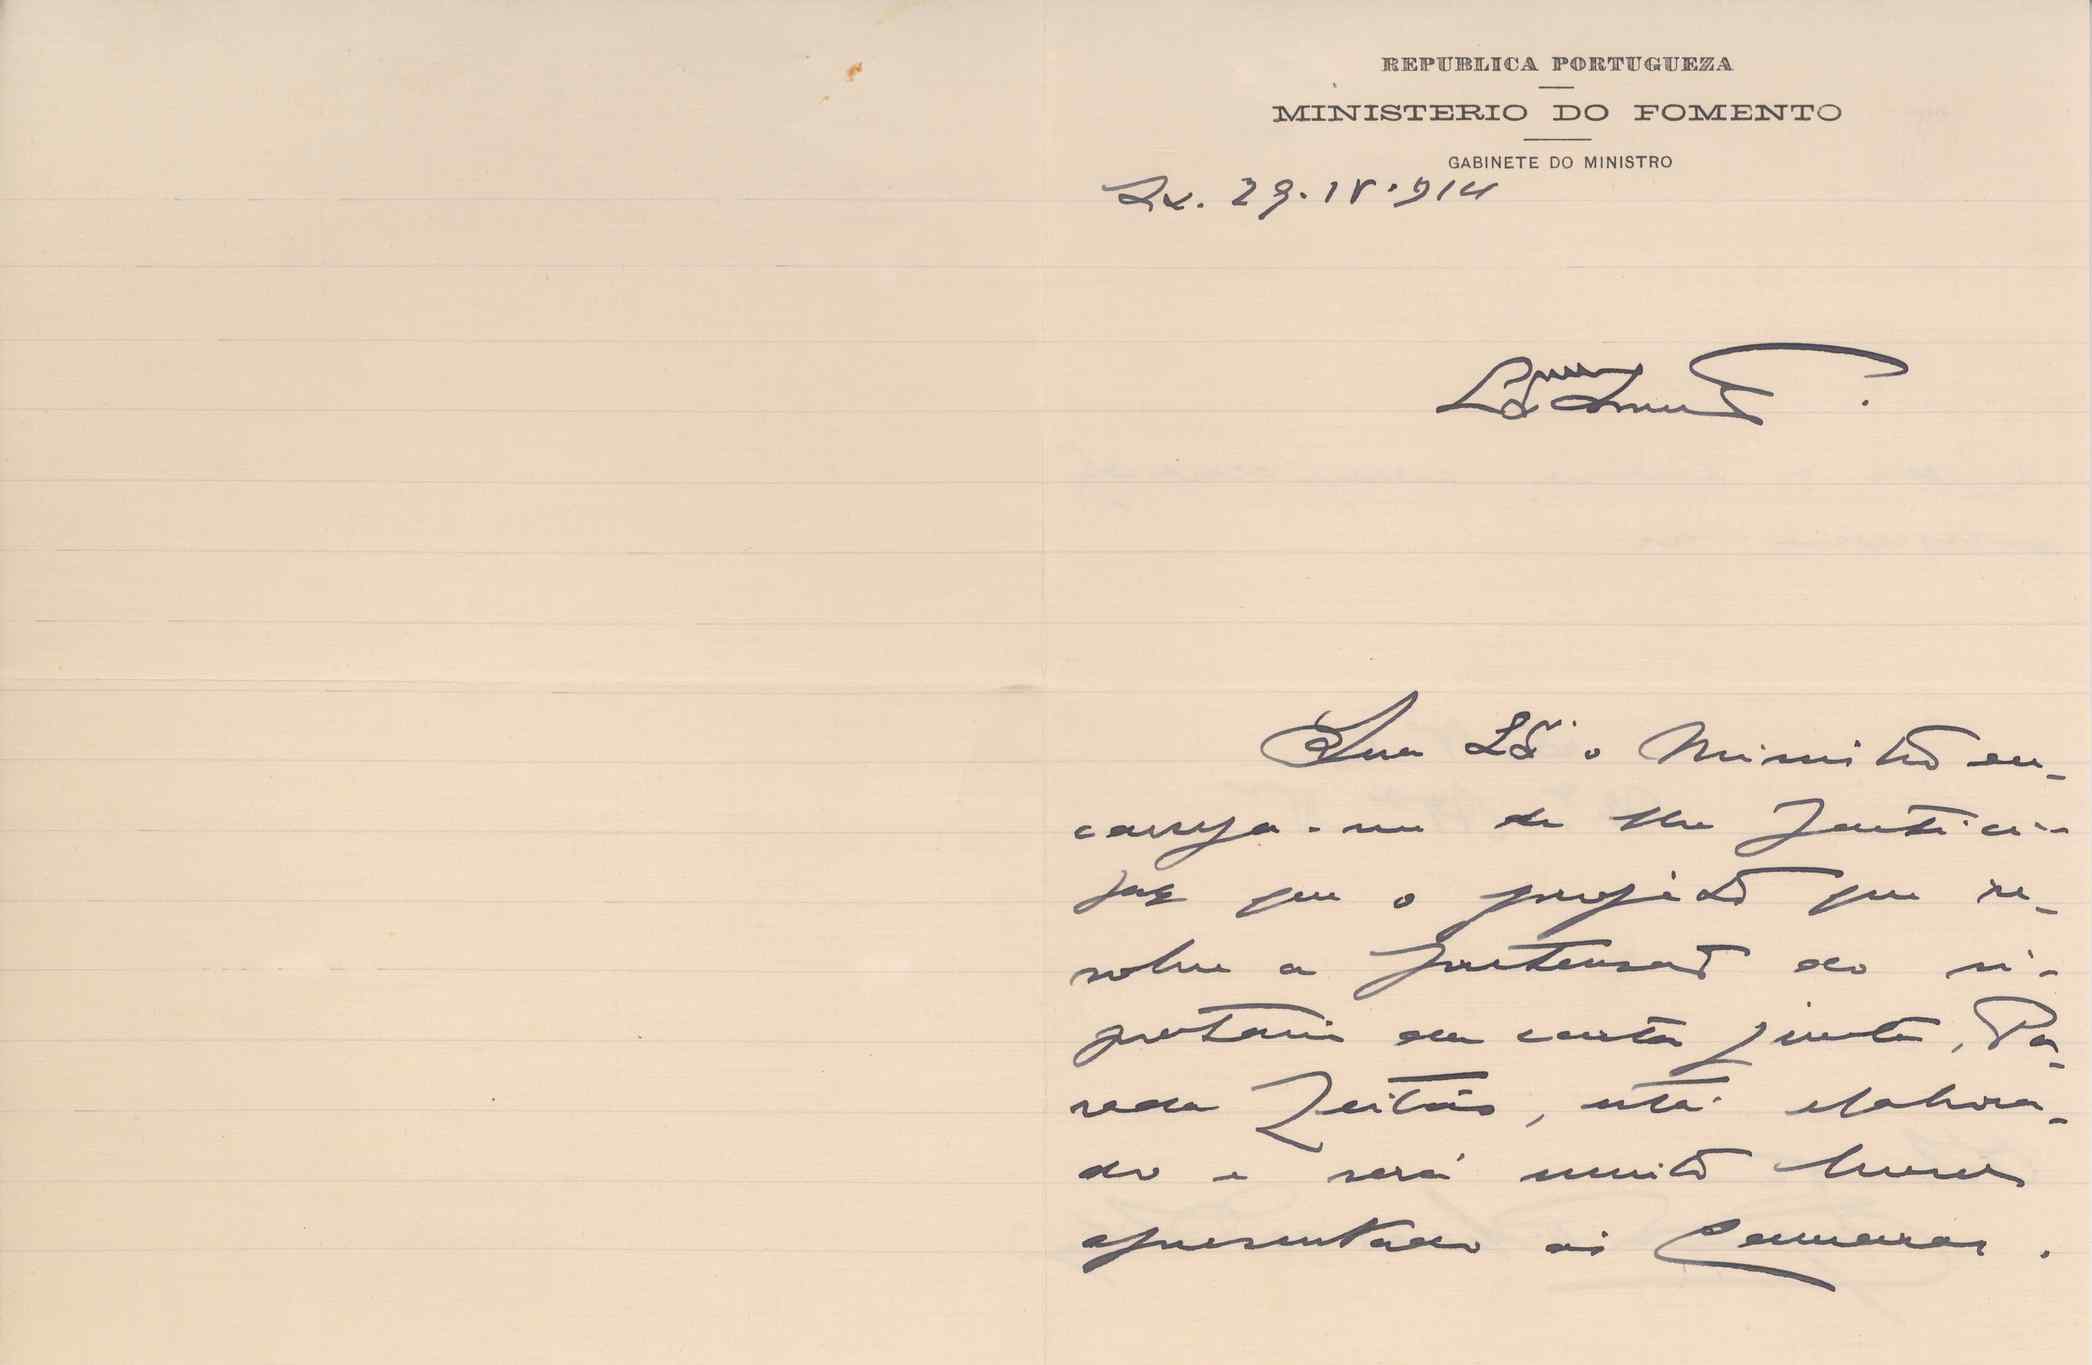 REPUBLICA PORTUGUEZA
MINISTERIO DO FOMENTO
GABINETE DO MINISTRO
Lx. 29.IV.914
Sua Exª o Ministro en-
carrega-me de lhe partici-
par que o projecto que re-
solve a pretensão do si-
gnatario da carta junta, Pa-
rada Leitão, está elabora-
do e será muito breve
apresentado ás Camaras.